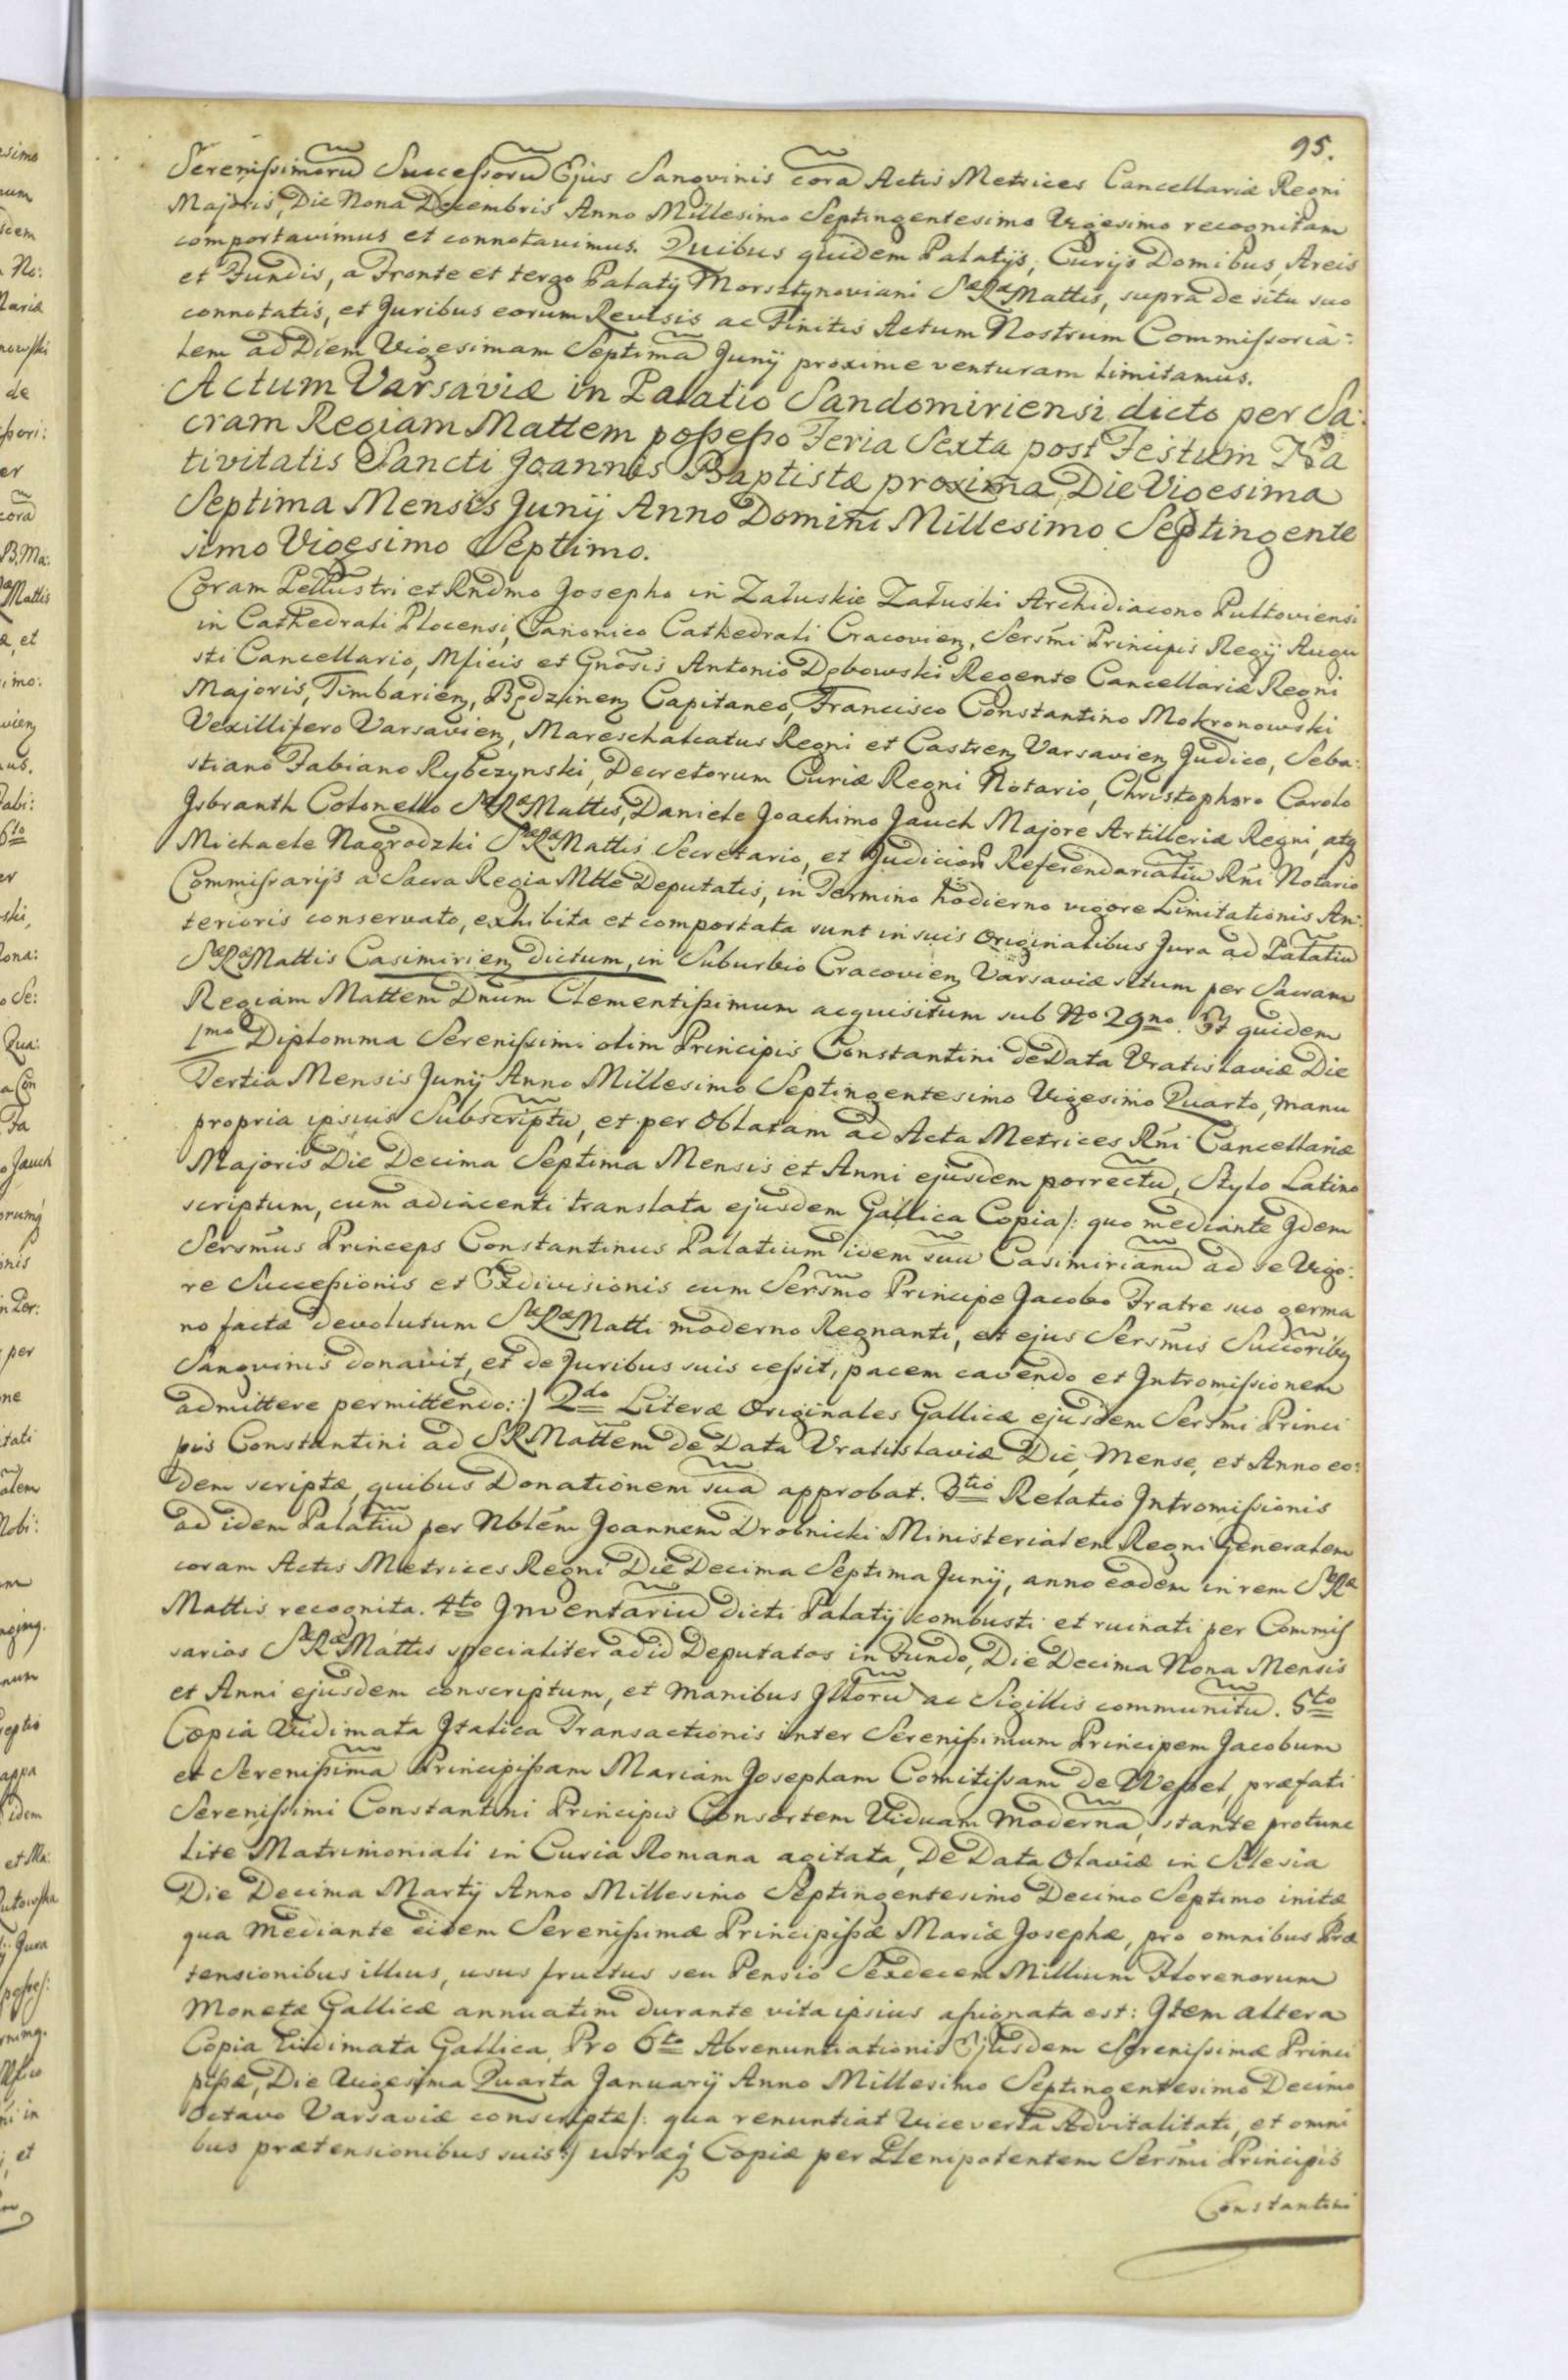 95.
Serenissimorũ Successorũ Ejus Sangvinis corã Actis Metrices Cancellariæ Regni
Majoris, Die Nona Decembris Anno Millesimo Septingentesimo Vigesimo recognitam
comportavimus et connotavimus. Quibus quidem Palatijs, Curijs Domibus, Areis
et Fundis, a Fronte et tergo Palatij Morsztynoviani Sæ Ræ Mattis, supra de situ suo
connotatis, et Juribus eorum Revisis ac Finitis Actum Nostrum Commissoria:
lem ad Diem Vigesimam Septimã Junij proxime venturam limitamus.
Actum Varsaviæ in Palatio Sandomiriensi dicto per Sa:
cram Regiam Mattem possesso Feria Sexta post Festum Na
tivitatis Sancti Joannis Baptistæ proxima, Die Vigesima
Septima Mensis Junij Anno Domini Millesimo Septingente
simo Vigesimo Septimo.
Coram Pellustri et Rndmo Josepho in Załuskie Załuski Archidiacono Pultoviensi
in Cathedrali Plocensi, Canonico Cathedrali Cracovien, Sersmi Principis Regij Augu
sti Cancellario, Mficis et Gnosis Antonio Dębowski Regente Cancellariæ Regni
Majoris, Timbarien, Będzinen Capitaneo, Francisco Constantino Mokronowski
Vexillifero Varsavien, Mareschalcatus Regni et Castren Varsavien Judice, Seba:
stiano Fabiano Rybczynski, Decretorum Curiæ Regni Notario, Christophoro Carolo
Jsbranth Colonello Sæ Ræ Mattis, Daniele Joachimo Jauch Majore Artilleriæ Regni, atq
Michaele Nagrodzki Sæ Ræ Mattis Secretario, et Judicior Referendariatũ Rni Notario
Commissarijs a Sacra Regia Mtte Deputatis, in Termino hodierno vigore Limitationis An:
terioris conservato, exhibita et comportata sunt in suis Originalibus Jura ad Palatiũ
Sæ Ræ Mattis Casimirien dictum, in Suburbio Cracovien Varsaviæ situm per Sacram
Regiam Mattem Dnum Clementissimum acquisitum sub No 29no. Et quidem
1mo Diplomma Serenissimi olim Principis Constantini de Data Vratislaviæ Die
Tertia Mensis Junij Anno Millesimo Septingentesimo Vigesimo Quarto, manu
propria ipsius Subscriptũ, et per Oblatam ad Acta Metrices Rni Cancellariæ
Majoris Die Decima Septima Mensis et Anni ejusdem porrectũ, Stylo Latino
scriptum, cum adiacenti translata ejusdem Gallica Copia /: quo mediante Jdem
Sersmus Princeps Constantinus Palatium idem suũ Casimirianũ ad se Vigo:
re Successionis et Exdivisionis cum Sersmo Principe Jacobo Fratre suo germa
no factæ devolutum Sæ Ræ Matti moderno Regnanti, et ejus Sersmis Succoribq
Sangvinis donavit, et de Juribus suis cessit, pacem cavendo et Jntromissionem
admittere permittendo :/ 2do Literæ Originales Gallicæ ejusdem Sersmi Princi
pis Constantini ad SR Mattem de Data Vratislaviæ Die, Mense, et Anno eo:
dem scriptæ, quibus Donationem suã approbat. 3tio Relatio Jntromissionis
ad idem Palatiũ per Nblem Joannem Drobnicki Ministerialem Regni Generalem
coram Actis Metrices Regni Die Decima Septima Junij, anno eodem in rem Sæ Ræ
Mattis recognita. 4to Jnventariũ dicti Palatij combusti et ruinati per Commis
sarios Sæ Ræ Mattis specialiter ad id Deputatos in Fundo, Die Decima Nona Mensis
et Anni ejusdem conscriptum, et manibus Jllorũ ac Sigillis communitũ. 5to
Copia Vidimata Jtalica Transactionis inter Serenissimum Principem Jacobum
et Serenissimã Principissam Mariam Josepham Comitissam de Wessel, præfati
Serenissimi Constantini Principis Consortem Viduam modernã, stante protunc
lite Matrimoniali in Curia Romana agitata, De Data Olaviæ in Silesia
Die Decima Martij Anno Millesimo Septingentesimo Decimo Septimo initæ
qua mediante eidem Serenissimæ Principissæ Mariæ Josephæ, pro omnibus Præ
tensionibus illius, usus fructus seu Pensio Sexdecem Millium Florenorum
Monetæ Gallicæ annuatim durante vita ipsius assignata est: Jtem altera
Copia Vidimata Gallica Pro 6to Abrenuntiationis Ejusdem Serenissimæ Princi
pissæ, Die Vigesima Quarta Januarij Anno Millesimo Septingentesimo Decimo
Octavo Varsaviæ conscriptæ /: qua renuntiat viceversa Advitalitati, et omni
bus prætensionibus suis :/ utræq Copiæ per Plenipotentem Sersmi Principis
Constantini